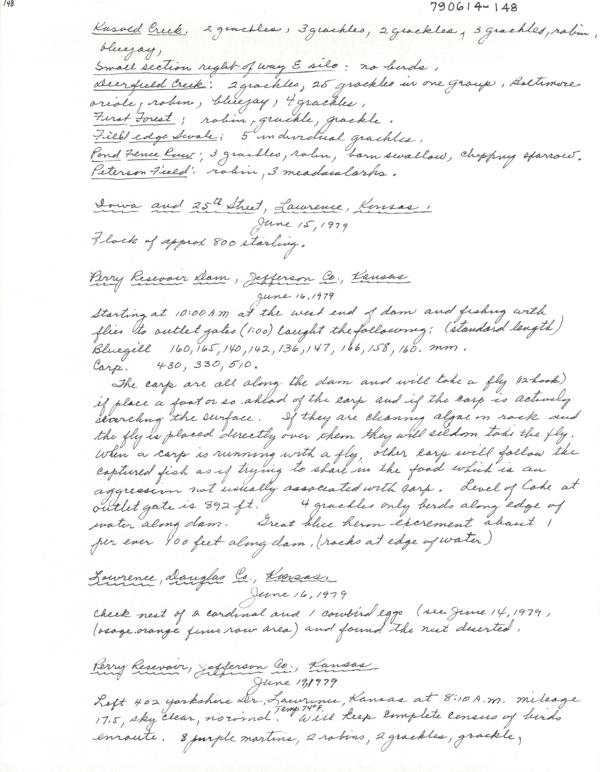 148
790614-148
Kasold Creek: 2 grackles, 3 grackles, 2 grackles, 3 grackles, robin,
bluejay,
Small section right of way E silo: no birds,
Deerfield Creek: 2 grackles, 25 grackles in one group, Baltimore
oriole, robin, bluejay, 4 grackles,
First Forest; robin, grackle, grackle.
Field edge Swale; 5 individual grackles.
Pond Fence Row; 3 grackles, robin, barn swallow, chipping sparrow.
Peterson Field: robin, 3 meadowlarks.
Iowa and 25th Street, Lawrence, Kansas:
June 15, 1979
Flock of approx 800 starling.
Perry Resevoir Dam, Jefferson Co., Kansas
June 16, 1979
Starting at 10:00 A.M at the west end of dam and fishing with
flies to outlet gates (1:00) Caught the following: (standard length)
Bluegill 160, 165, 140, 142, 136, 147, 166, 158, 160. mm.
Carp. 430, 330, 510.
The carp are all along the dam and will take a fly (12 hook)
if place a foot or so ahead of the carp and if the carp is actively
searching the surface. If they are cleaning algae on rock and
the fly is placed directly over them they will seldom take the fly.
When a carp is running with a fly, other carp will follow the
captured fish as if trying to share in the food which is an
aggression not usually associated with carp. Level of Lake at
outlet gate is 892 ft. 4 grackles only birds along edge of
water along dam. Great blue heron excrement about 1
per ever 100 feet along dam, (rocks at edge of water)
Lawrence, Douglas Co., Kansas:
June 16, 1979
Check nest of cardinal and 1 cowbird eggs (see June 14, 1979,
(osage orange fence row area) and found the nest deserted.
Perry Resevoir, Jefferson Co., Kansas
June 1979
Left 402 Yorkshire Dr., Lawrence, Kansas at 8:10 A.M. mileage
17.5, sky clear, no wind. Temp 74°F. Will keep complete census of birds
enroute. 8 purple martins, 2 robins, 2 grackles, grackle,